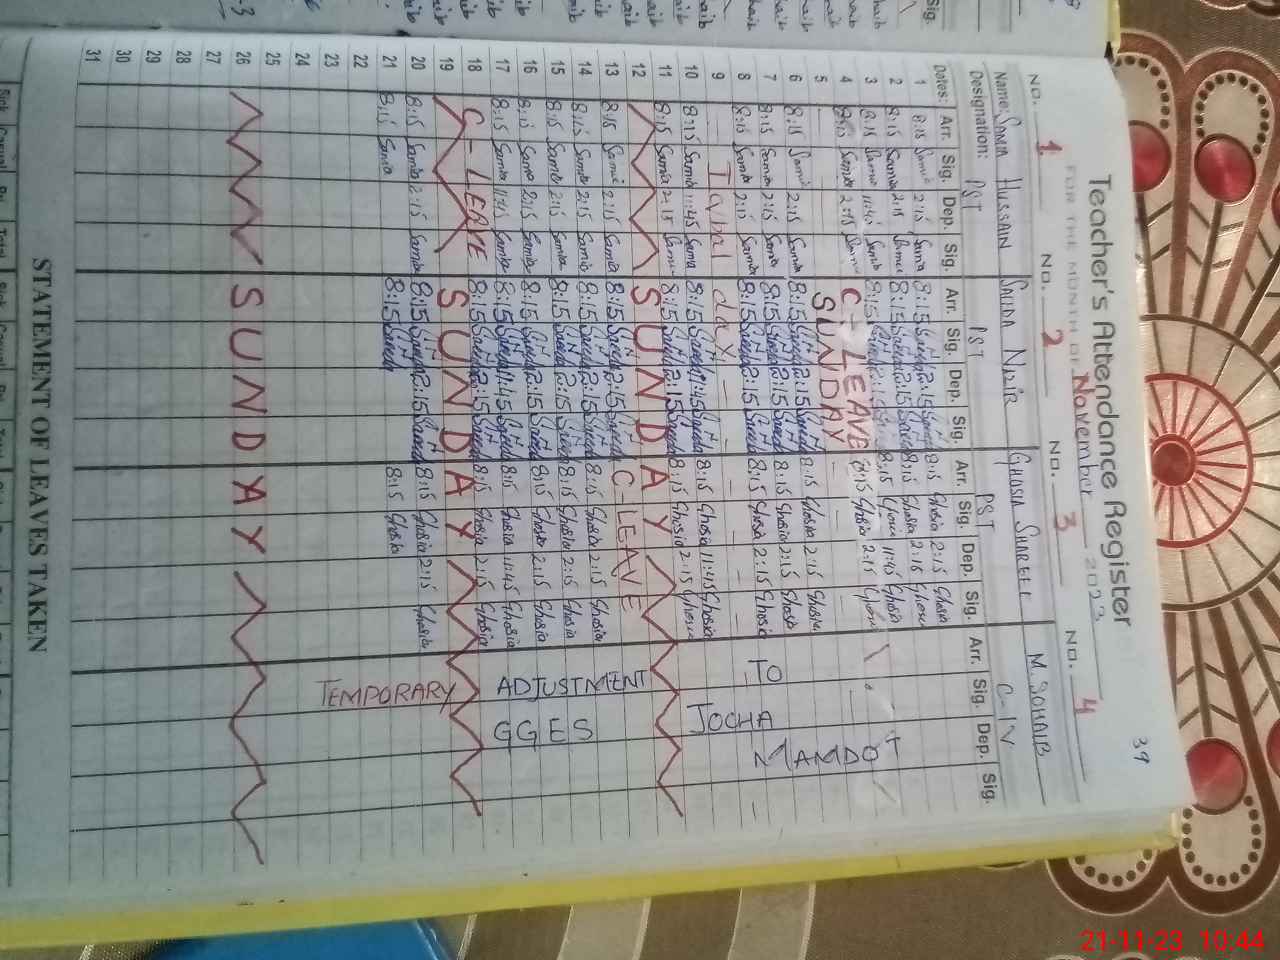 39
Teacher's Attendance Register
FOR THE MONTH OF November 2023
NO. 1 NO. 2 NO. 3 NO. 4
Name: Samia Hussain Saeeda Nazir Ghosia Shareef M. Sohaib
Designation: PST PST PST C-IV
Dates: Arr. Sig. Dep. Sig. Arr. Sig. Dep. Sig. Arr. Sig. Dep. Sig. Arr. Sig. Dep. Sig.
1 8:15 Samia 2:15 Samia 8:15 Saeeda 2:15 Saeeda 8:15 Ghosia 2:15 Ghosia
2 8:15 Samia 2:15 Samia 8:15 Saeeda 2:15 Saeeda 8:15 Ghosia 2:15 Ghosia
3 8:15 Samia 11:45 Samia 8:15 Saeeda 8:15 Ghosia 11:45 Ghosia
4 8:15 Samia 2:15 Samia C-LEAVE 8:15 Ghosia 2:15 Ghosia
5 SUNDAY
6 8:15 Samia 2:15 Samia 8:15 Saeeda 2:15 Saeeda 8:15 Ghosia 2:15 Ghosia
7 8:15 Samia 2:15 Samia 8:15 Saeeda 2:15 Saeeda 8:15 Ghosia 2:15 Ghosia
8 8:15 Samia 2:15 Samia 8:15 Saeeda 2:15 Saeeda 8:15 Ghosia 2:15 Ghosia
9 Iqbal day
10 8:15 Samia 11:45 Samia 8:15 Saeeda 11:45 Saeeda 8:15 Ghosia 11:45 Ghosia
11 8:15 Samia 2:15 Samia 8:15 Saeeda 2:15 Saeeda 8:15 Ghosia 2:15 Ghosia
12 SUNDAY
13 8:15 Samia 2:15 Samia 8:15 Saeeda 2:15 Saeeda C-LEAVE
14 8:15 Samia 2:15 Samia 8:15 Saeeda 2:15 Saeeda 8:15 Ghosia 2:15 Ghosia
15 8:15 Samia 2:15 Samia 8:15 Saeeda 2:15 Saeeda 8:15 Ghosia 2:15 Ghosia
16 8:15 Samia 2:15 Samia 8:15 Saeeda 2:15 Saeeda 8:15 Ghosia 2:15 Ghosia
17 8:15 Samia 11:45 Samia 8:15 Saeeda 11:45 Saeeda 8:15 Ghosia 11:45 Ghosia
18 C-LEAVE 8:15 Saeeda 2:15 Saeeda 8:15 Ghosia 2:15 Ghosia
19 SUNDAY
20 8:15 Samia 2:15 Samia 8:15 Saeeda 2:15 Saeeda 8:15 Ghosia 2:15 Ghosia
21 8:15 Samia 8:15 Saeeda 8:15 Ghosia
22
23
24
25
26 SUNDAY
27
28
29
30
31
TEMPORARY ADJUSTMENT TO
GGES JOCHA
MAMDOT
STATEMENT OF LEAVES TAKEN
21-11-23 10:44